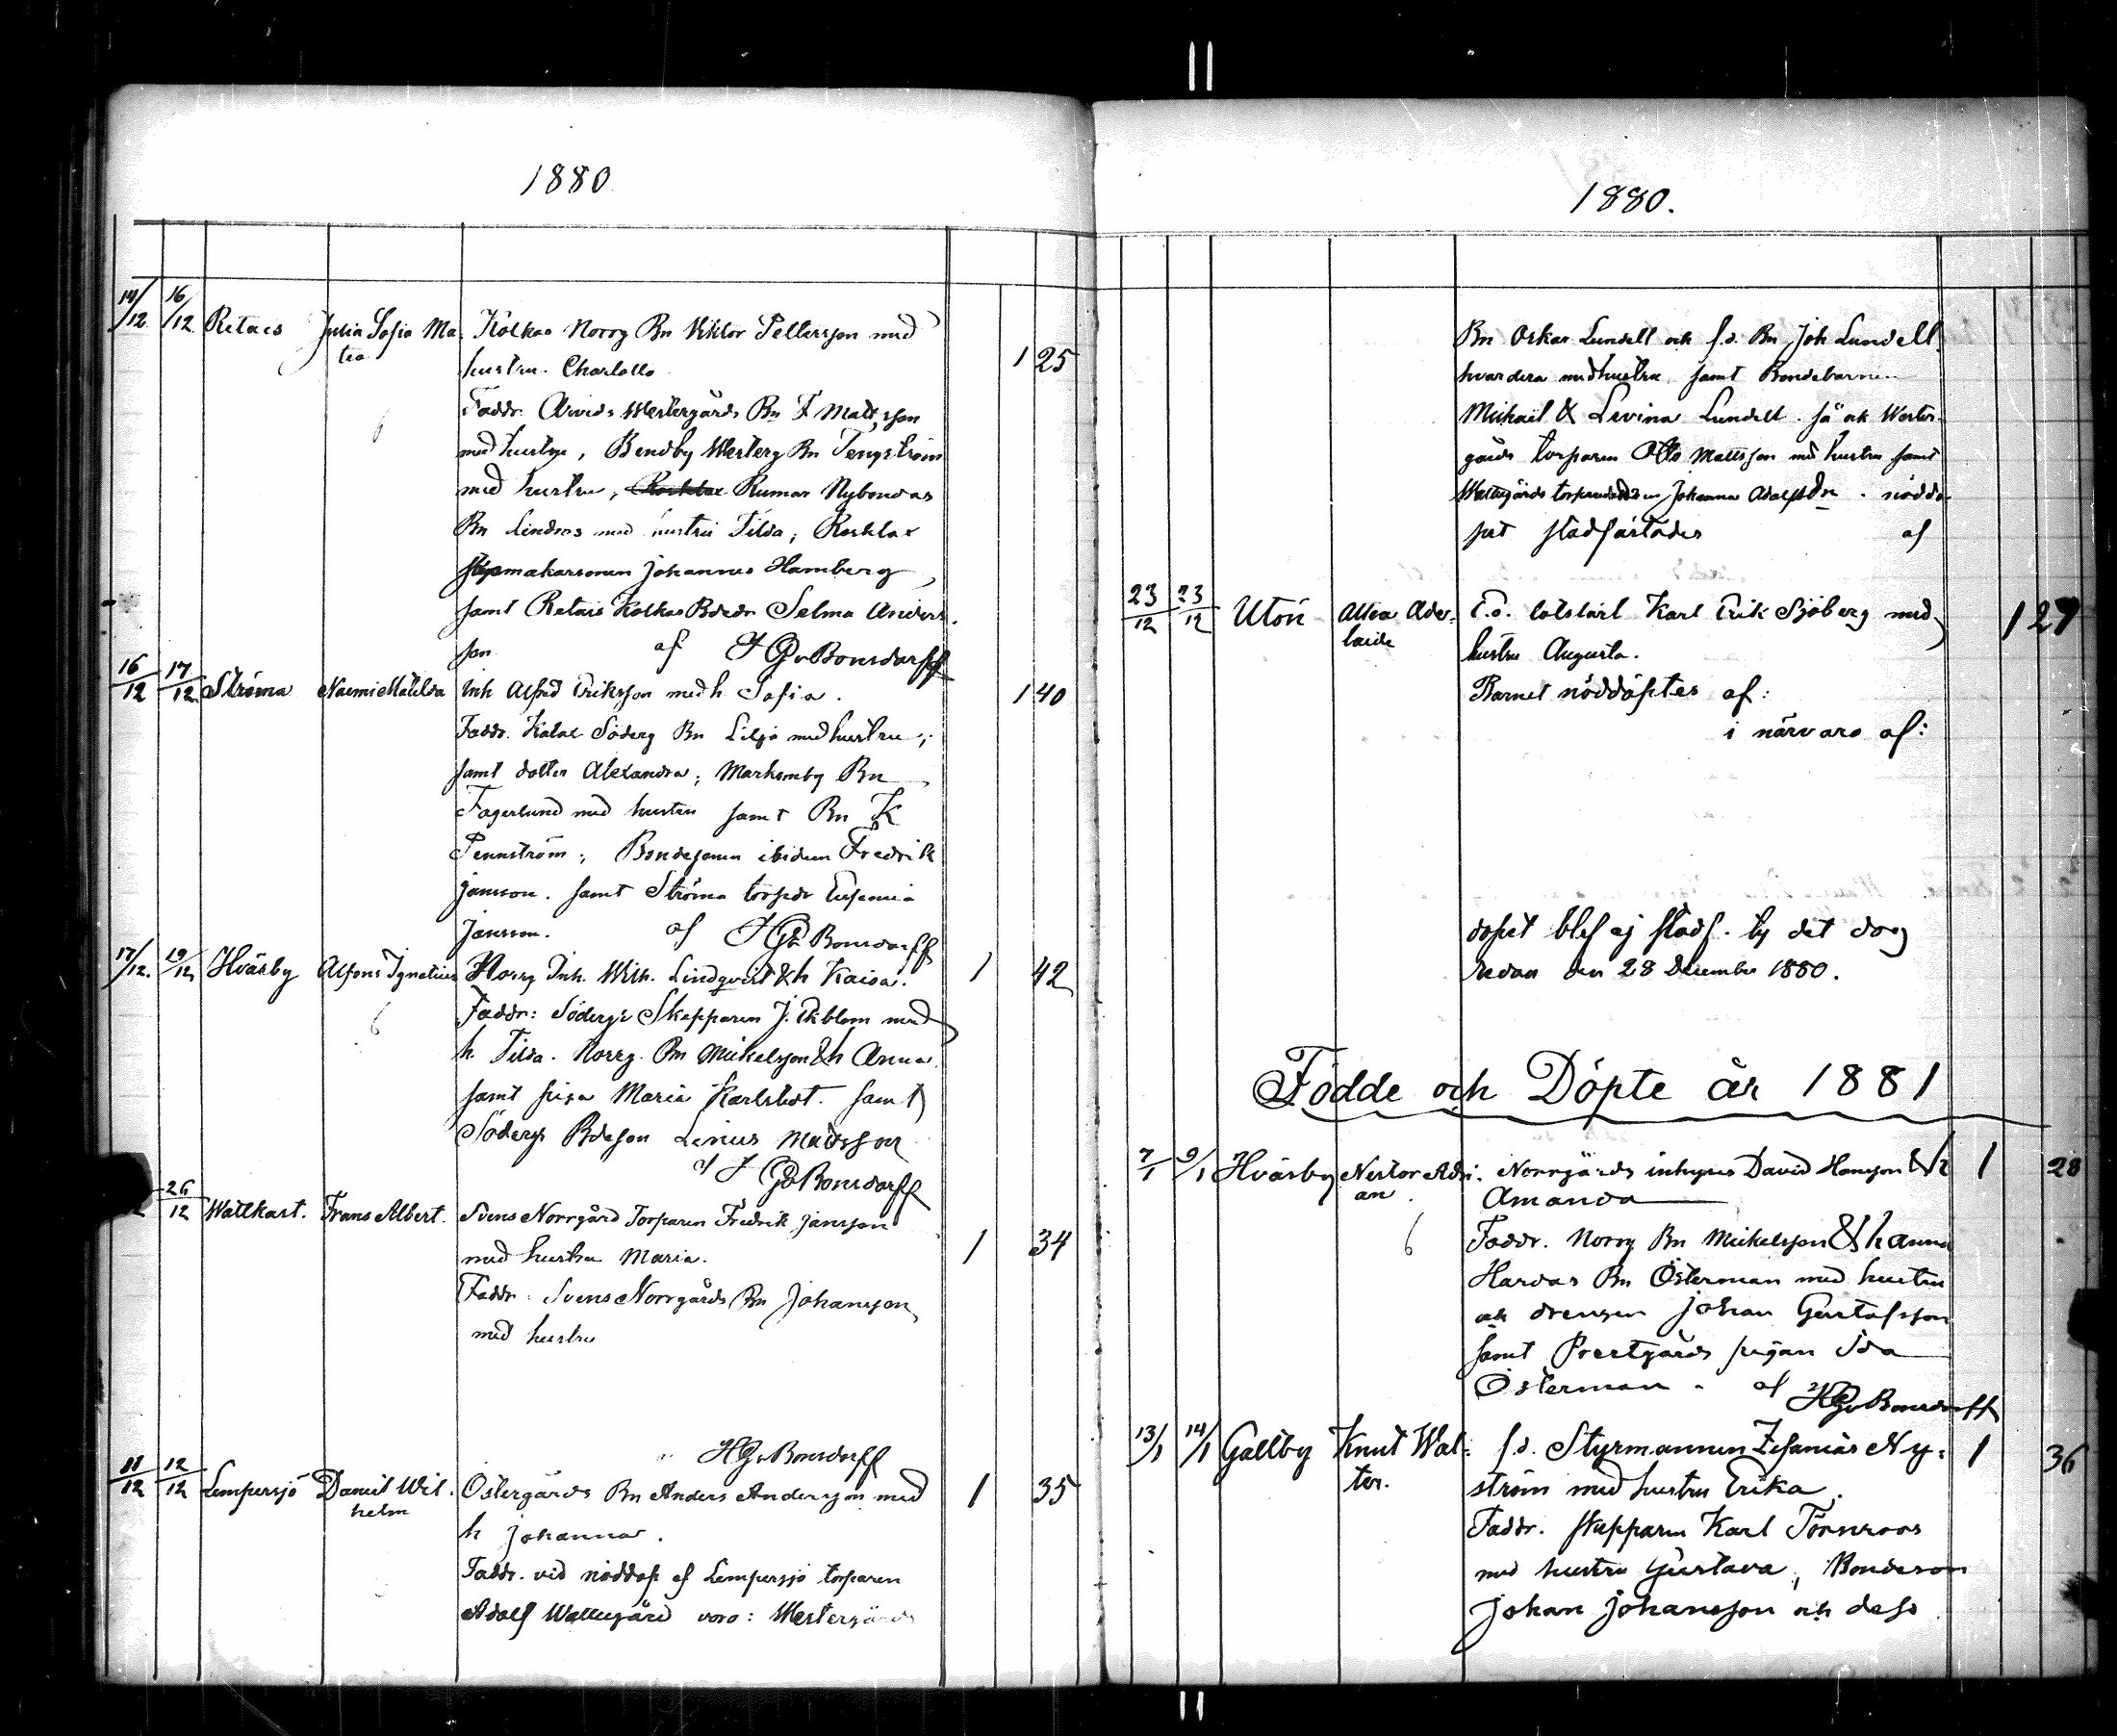 1880
14/12 16/12 Retais Julia Sofia Ma- Kolkas Norrg Bn Viktor Pettersson med
tea hustru Charlotta 1 25
Faddr. Arvids Westergårds Bn F Mattsson
med hustru, Bendby Westerg Bn Tengström
med hustru, Rumar Nybondas
Bn Lindros med hustru Tilda; Roslax
makaresonen Johannes Hamberg
samt Retais Kolkas Bdedr Selma Anders-
son af HGvBonsdorff
16/12 17/12 Ströma Naemi Matilda Inh Alfred Eriksson med h Sofia. 1 40
Faddr. Kalax Söderg Bn Liljo med hustru;
samt dotter Alexandra; Markomby Bn
Fagerlund med hustru samt Bn K
Pennström; Bondesonen ibidem Fredrik
Janson. samt Ströma torpdr Eufemia
Jansson. af HGv Bonsdorff
17/12. 19/12 Hväsby Alfons Ignatius Norrg Inh. Wilh. Lindqvist & h Kaisa. 1 42
Faddr: Södergs Skepparen J. Ekblom med
h Tilda. Norrg. Bn Mickelsson & h Anna
samt piga Maria Karlstedt. samt
Södergs Bdeson Linus Mattsson
af HGvBonsdorff
26/12 Wattkast. Frans Albert. Svens Norrgård Torparen Fredrik Jansson
med hustru Maria. 1 34
Faddr. Svens Norrgårds Bn Johansson
med hustru
HGvBonsdorff
11/12 12/12 Lempersjö Daniel Wil- Östergårds Bn Anders Andersson med 1 35
helm h Johanna.
Faddr. vid nöddop af Lempersjö torparen
Adolf Wattugård voro: Westergårds
1880.
Bn Oskar Lundell och f.d. Bn Joh Lundell
hvardera med hustru samt Bondebarnen
Mickaël & Levina Lundell. så ock Wester-
gårds torparen Otto Mattsson med hustru samt
Wattugårds Johanna Adolfsdr. nöddo-
pet stadfästades af
23/12 23/12 Utön Alma Ade- F.d. lotskarl Karl Erik Sjöberg med 1 27
laide hustru Augusta.
Barnet nöddöptes af:
i närvaro af:
dopet blef ej stadf. ty det dog
redan den 28 December 1880.
Födde och Döpte år 1881
7/1 9/1 Hväsby Nestor Adri- Norrgårds inhyses David Hansson & h 1 28
an. Amanda
Faddr. Norrg Bn Mickelsson & h Anna
Harvas Bn Österman med hustru
och drengen Johan Gustafsson
samt Prestgårds pigan Ida
Österman. af HGvBonsdorff
13/1 14/1 Galtby Knut Wal- f.d. Styrmannen Zefanias Ny- 1 36
ter. ström med hustru Erika.
Faddr. skepparen Karl Törnroos
med hustru Gustava, Bondeson
Johan Johansson och dess